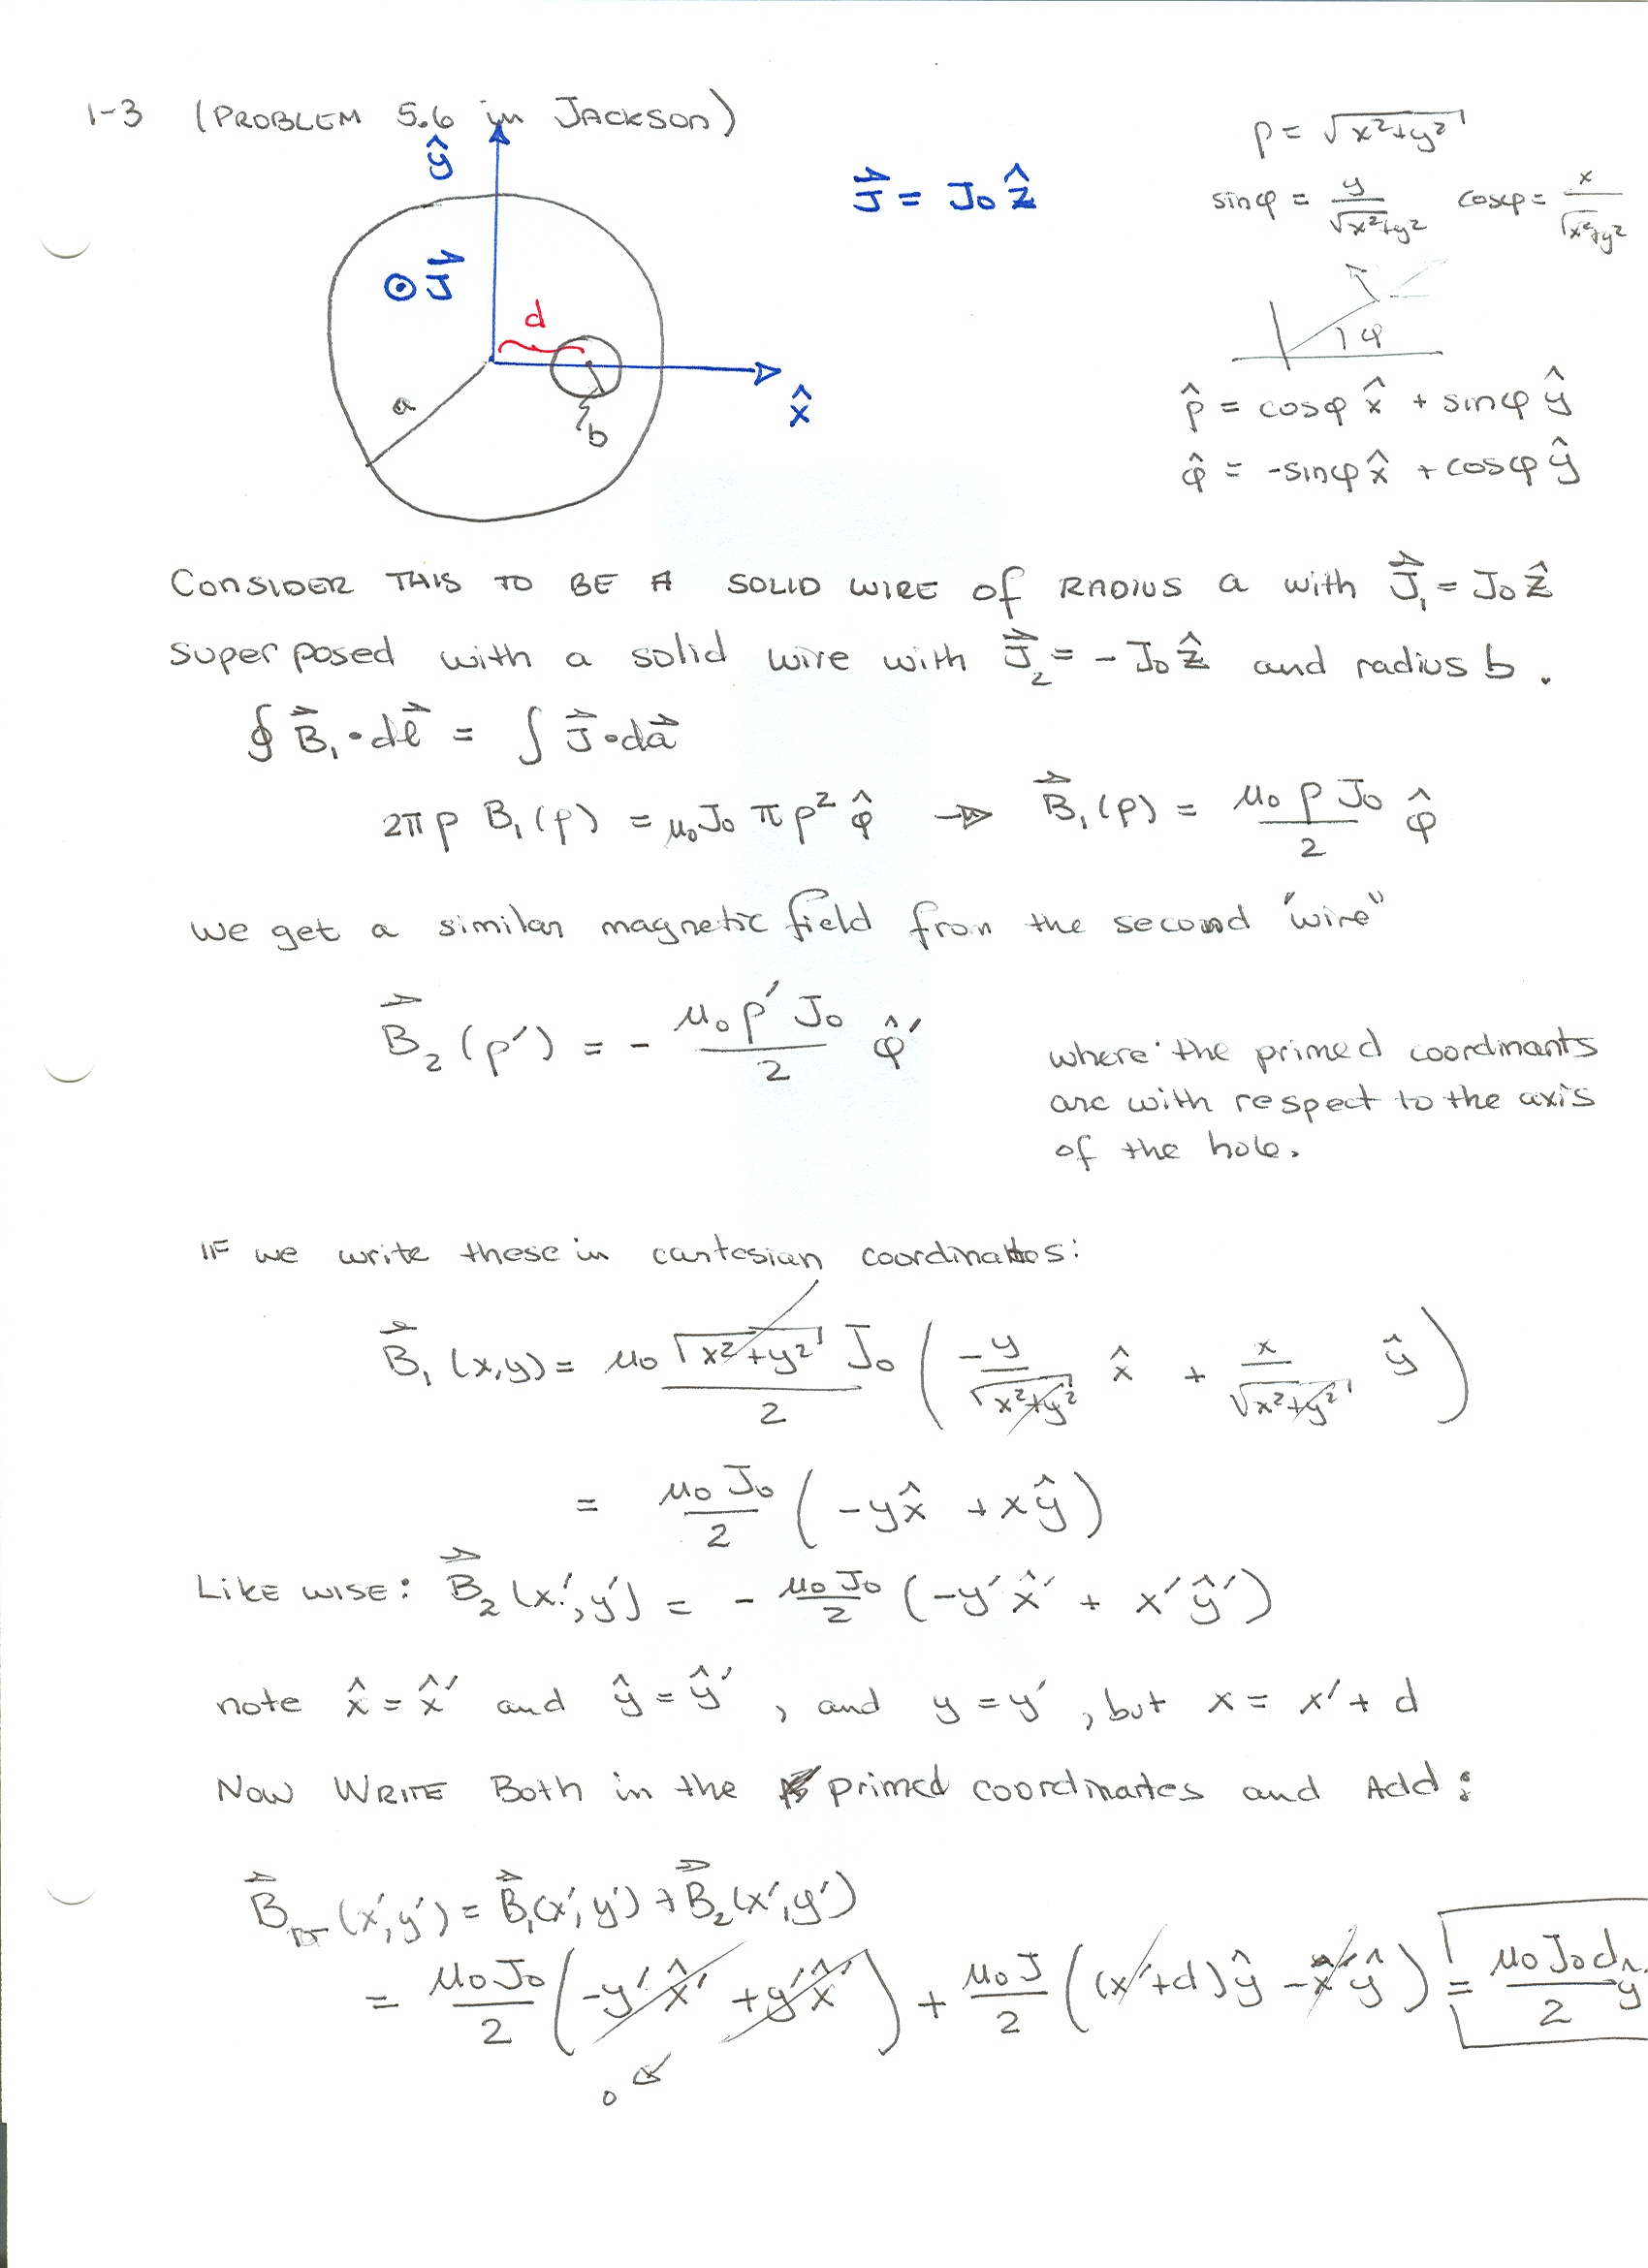 1-3 (PROBLEM 5.6 in JACKSON)
ρ = √(x²+y²)
ŷ
J⃗ = J₀ ẑ
sinφ = y/√(x²+y²) cosφ = x/√(x²+y²)
⊙ J⃗
d
φ
a
b
x̂
ρ̂ = cosφ x̂ + sinφ ŷ
φ̂ = -sinφ x̂ + cosφ ŷ
CONSIDER THIS TO BE A SOLID WIRE of RADIUS a with J⃗₁ = J₀ ẑ
superposed with a solid wire with J⃗₂ = - J₀ ẑ and radius b.
∮ B⃗₁ • dℓ⃗ = ∫ J⃗ • da⃗
2πρ B₁(ρ) = μ₀ J₀ π ρ² φ̂ → B⃗₁(ρ) = μ₀ ρ J₀ / 2 φ̂
we get a similar magnetic field from the second "wire"
B⃗₂(ρ′) = - μ₀ ρ′ J₀ / 2 φ̂′
where the primed coordinants
are with respect to the axis
of the hole.
IF we write these in cartesian coordinates:
B⃗₁(x,y) = μ₀ √(x²+y²) J₀ / 2 ( -y/√(x²+y²) x̂ + x/√(x²+y²) ŷ )
= μ₀ J₀ / 2 ( -y x̂ + x ŷ )
LIKE WISE: B⃗₂(x′,y′) = - μ₀ J₀ / 2 (-y′ x̂′ + x′ ŷ′)
note x̂ = x̂′ and ŷ = ŷ′, and y = y′, but x = x′ + d
NOW WRITE BOTH in the primed coordinartes and Add:
B⃗ (x′,y′) = B⃗₁(x′,y′) + B⃗₂(x′,y′)
= μ₀ J₀ / 2 ( -y′ x̂′ + y′ x̂′ ) + μ₀ J / 2 ( (x′+d) ŷ - x′ ŷ ) = μ₀ J₀ d / 2 ŷ
0